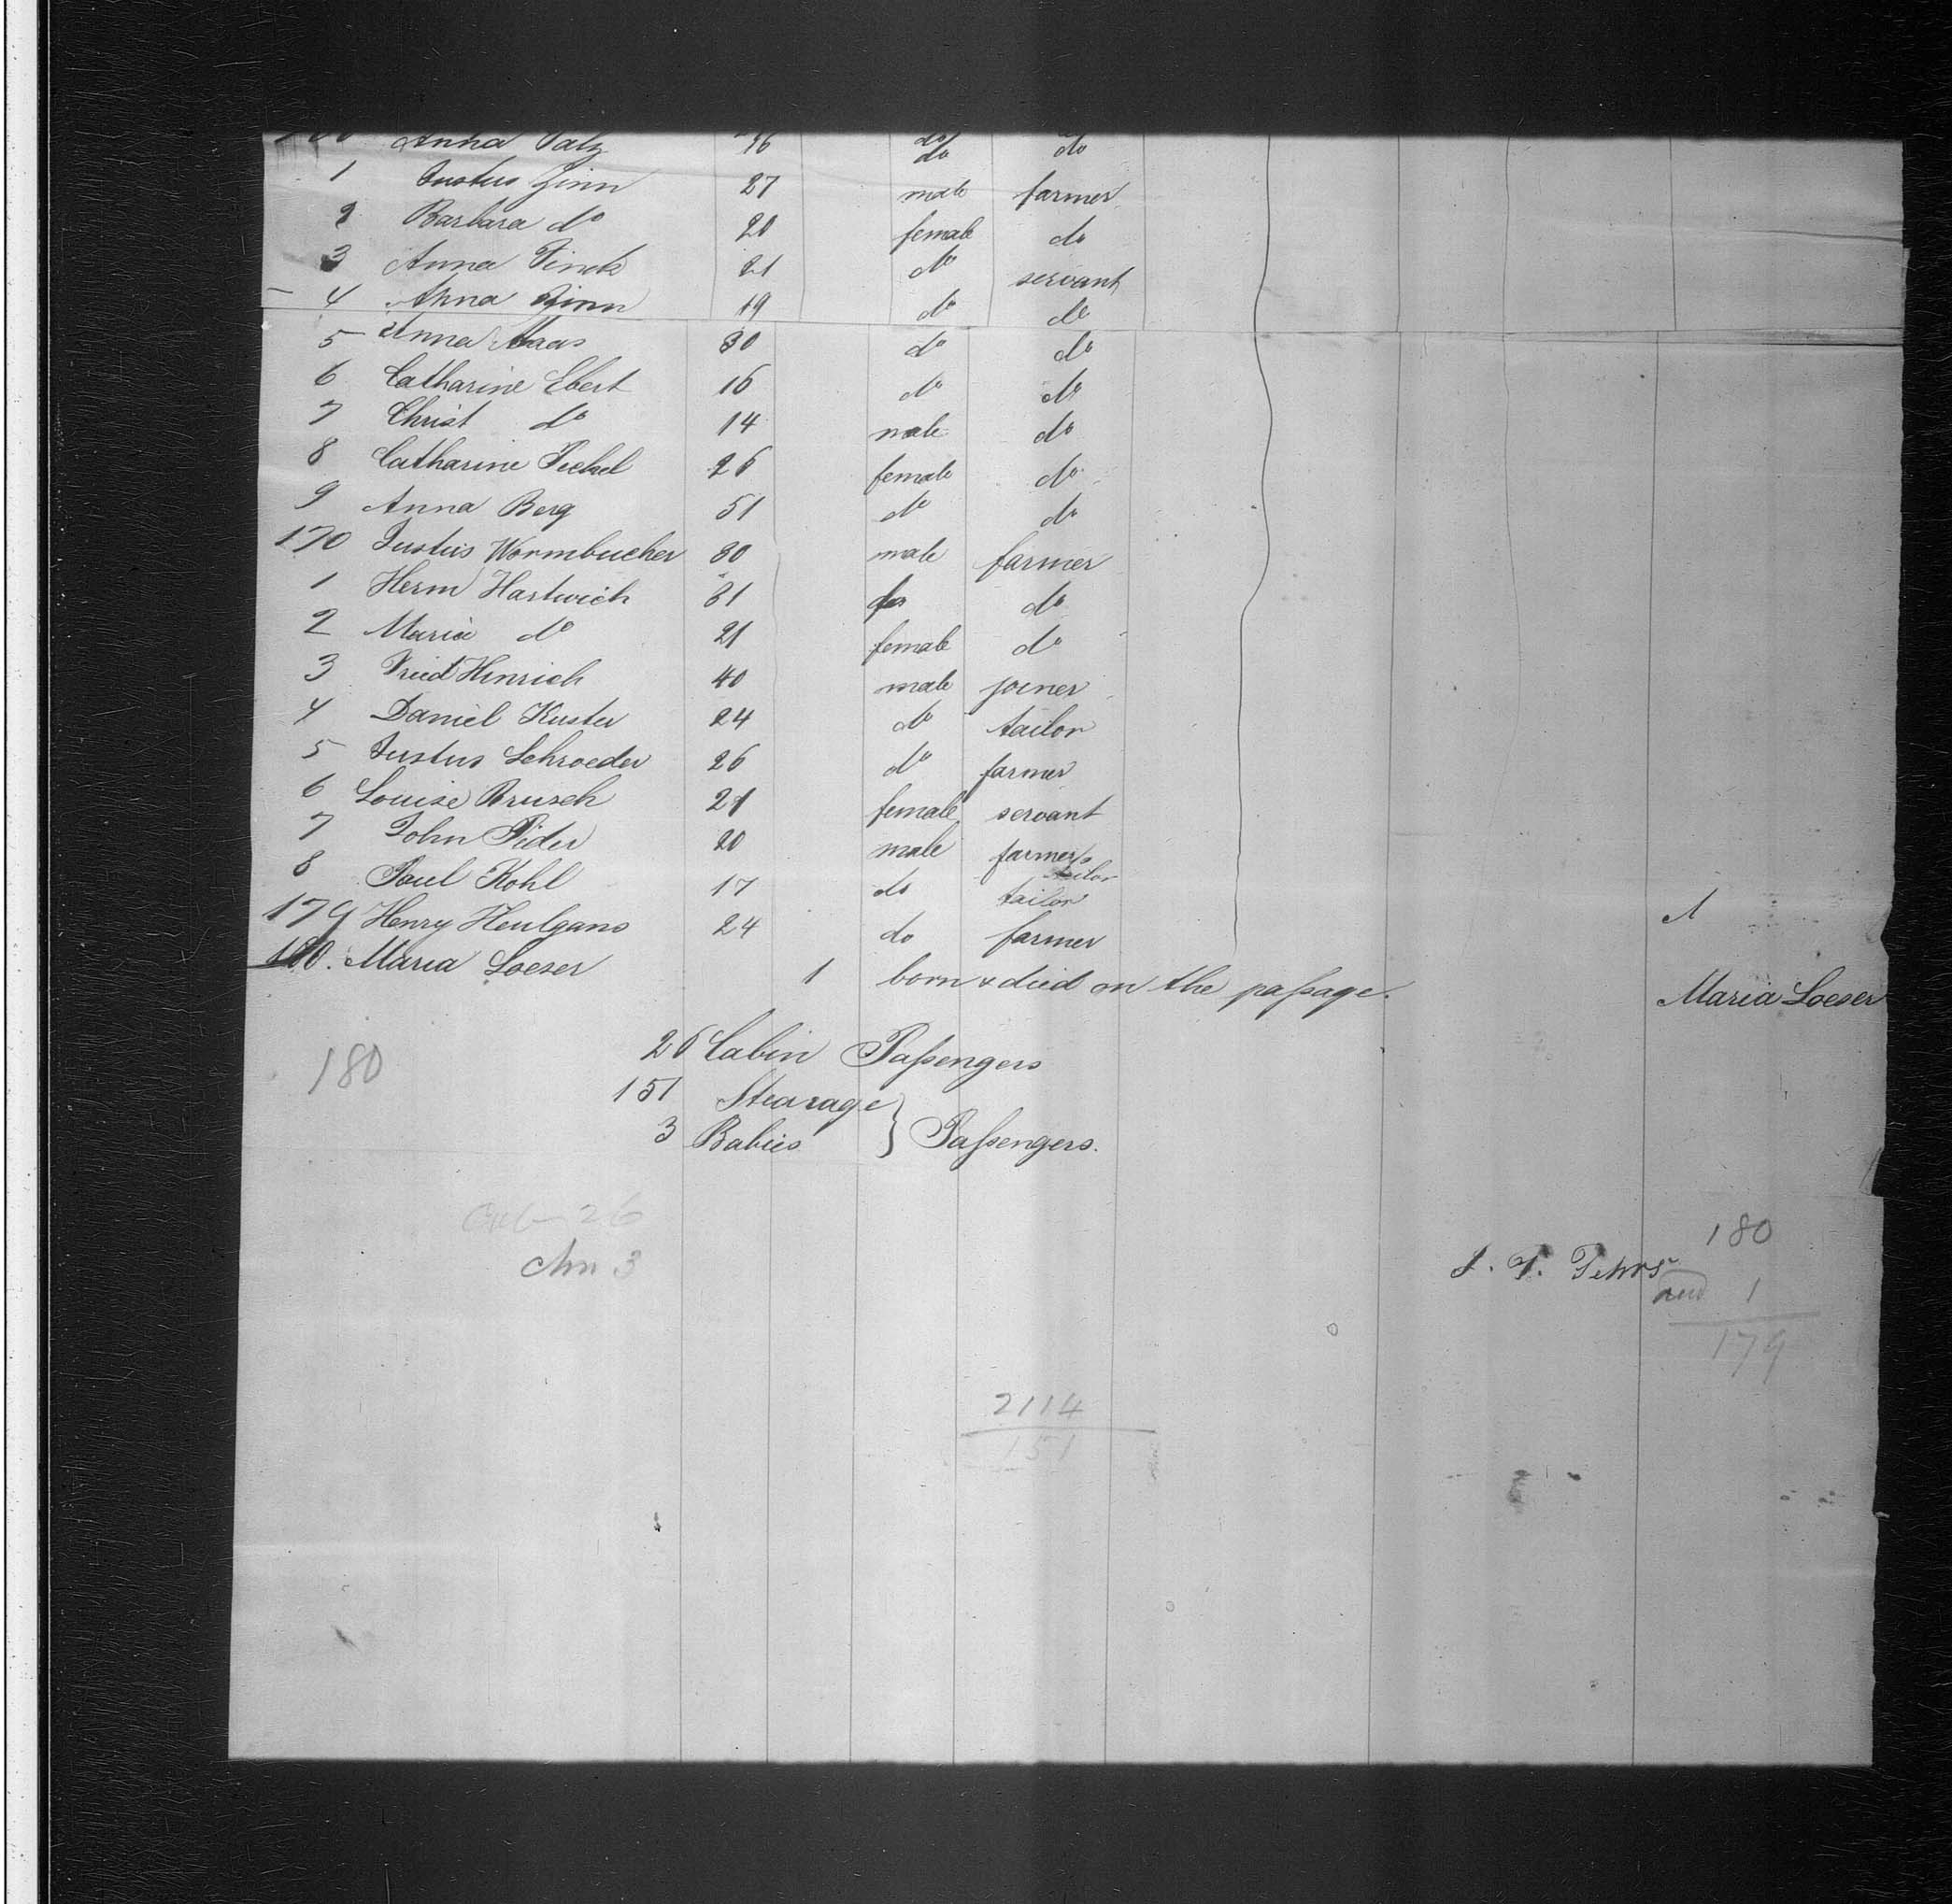 Anna Salz 26 do do
1 Justus Zinn 27 male farmer
2 Barbara do 20 female do
3 Anna Finck 21 do servant
4 Anna Zinn 19 do do
5 Anna Maas 30 do do
6 Catharine Ebert 16 do do
7 Christ do 14 male do
8 Catharine Pechel 26 female do
9 Anna Berg 51 do do
170 Justus Wormbucher 30 male farmer
1 Herm Hartwich 31 do do
2 Maria do 21 female do
3 Fried Hinrich 40 male joiner
4 Daniel Kuster 24 do tailor
5 Justus Schroeder 26 do farmer
6 Louise Brusch 21 female servant
7 John Pider 20 male farmer
8 Paul Kohl 17 do tailor
179 Henry Heulgans 24 do farmer 1
180. Maria Loeser 1 born & died on the passage. Maria Loeser
180
26 Cabin Passengers
151 Stearage
3 Babies } Passengers.
26
3
180
1
179
2114
151